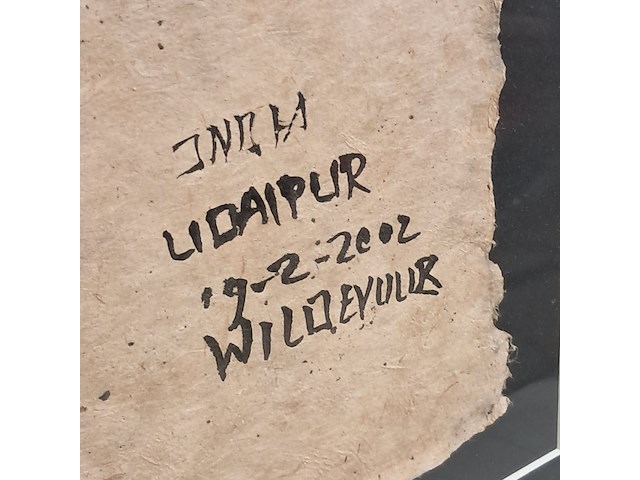 INDIA
UDAIPUR
19-2-2002
WILDEVUUR